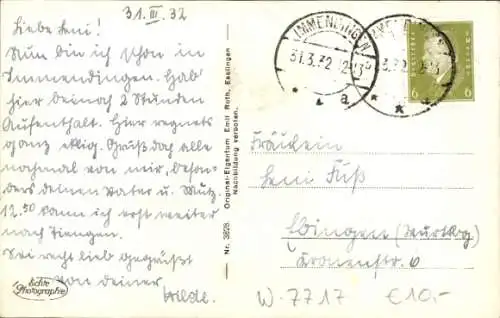 31. III. 32
Liebe Leni!
Nun bin ich schon in
Immendingen. Hab'
hier beinah 2 Stunden
Aufenthalt. Hier regnets
ganz eklig. Grüß doch alle
nochmal von mir, beson-
ders deinen Vater u. Mutz.
12.50 kann ich erst weiter
nach Tiengen.
Sei recht lieb gegrüßt
von deiner
Hilde.
Echte
Photographie
Nr. 3828 Original-Eigentum Emil Roth, Esslingen
Nachbildung verboten.
IMMENDINGEN
31.3.32
a
6 6
Fräulein
Leni Füß
Ebingen (Württbg)
Kronenstr. 6
W-7717 €10,-